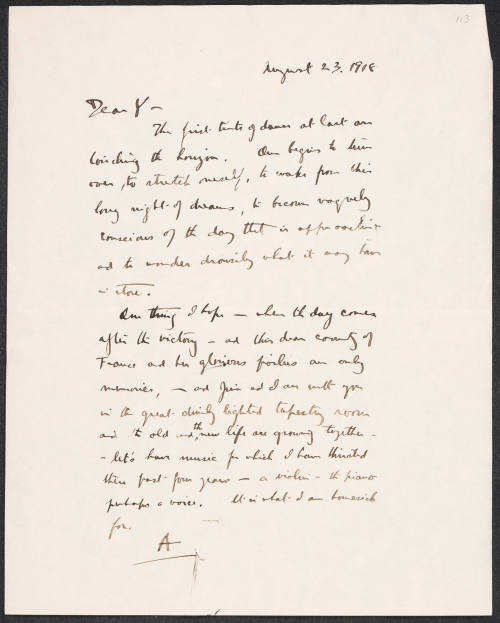 113
August 23. 1918
Dear Y —
The first tints of dawn at last are
touching the horizon. One begins to turn
over, to stretch oneself, to wake from this
long night of dreams, to become vaguely
conscious of the day that is approaching
and to wonder drowsily what it may have
in store.
One thing I hope — when the day comes
after the victory — and this dear country of
France and her glorious poilus are only
memories, — and Piatt and I are with you
in the great dimly lighted tapestry room
and the old and the new life are growing together -
- let's have music for which I have thirsted
these past four years — a violin - the piano
perhaps a voice. It is what I am homesick
for.
A